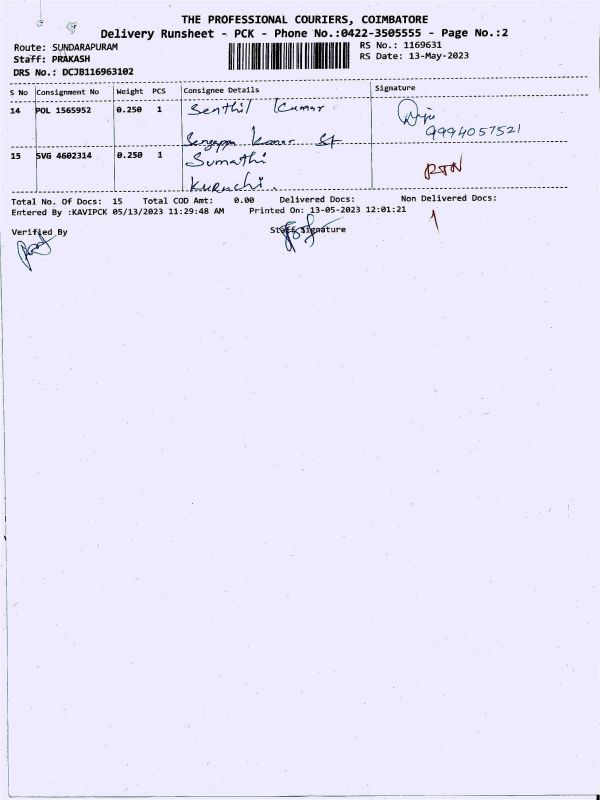 THE PROFESSIONAL COURIERS, COIMBATORE
Delivery Runsheet - PCK - Phone No.:0422-3505555 - Page No.:2
Route: SUNDARAPURAM
RS No.: 1169631
Staff: PRAKASH
RS Date: 13-May-2023
DRS No.: DCJB116963102
S No Consignment No Weight PCS Consignee Details Signature
14 POL 1565952 0.250 1 Senthil Kumar
9994057521
15 SVG 4602314 0.250 1 Sumathi
RTN
Kuruchi.
Total No. Of Docs: 15 Total COD Amt: 0.00 Delivered Docs: Non Delivered Docs:
Entered By :KAVIPCK 05/13/2023 11:29:48 AM Printed On: 13-05-2023 12:01:21
1
Verified By Staff Signature